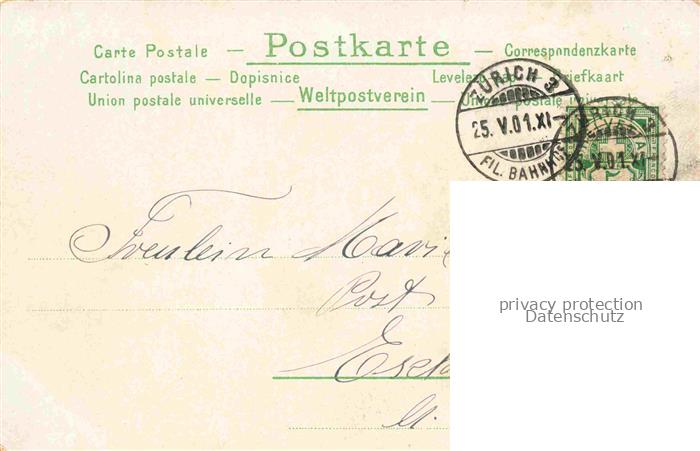 Carte Postale — Postkarte — Correspondenzkarte
Cartolina postale — Dopisnice Levelező lap Briefkaart
Union postale universelle — Weltpostverein — Union postale universelle
ZÜRICH 3
25.V.01.XI-
FIL. BAHNHOF
25.V.01.XI-
Fräulein Marie
Post
privacy protection
Datenschutz